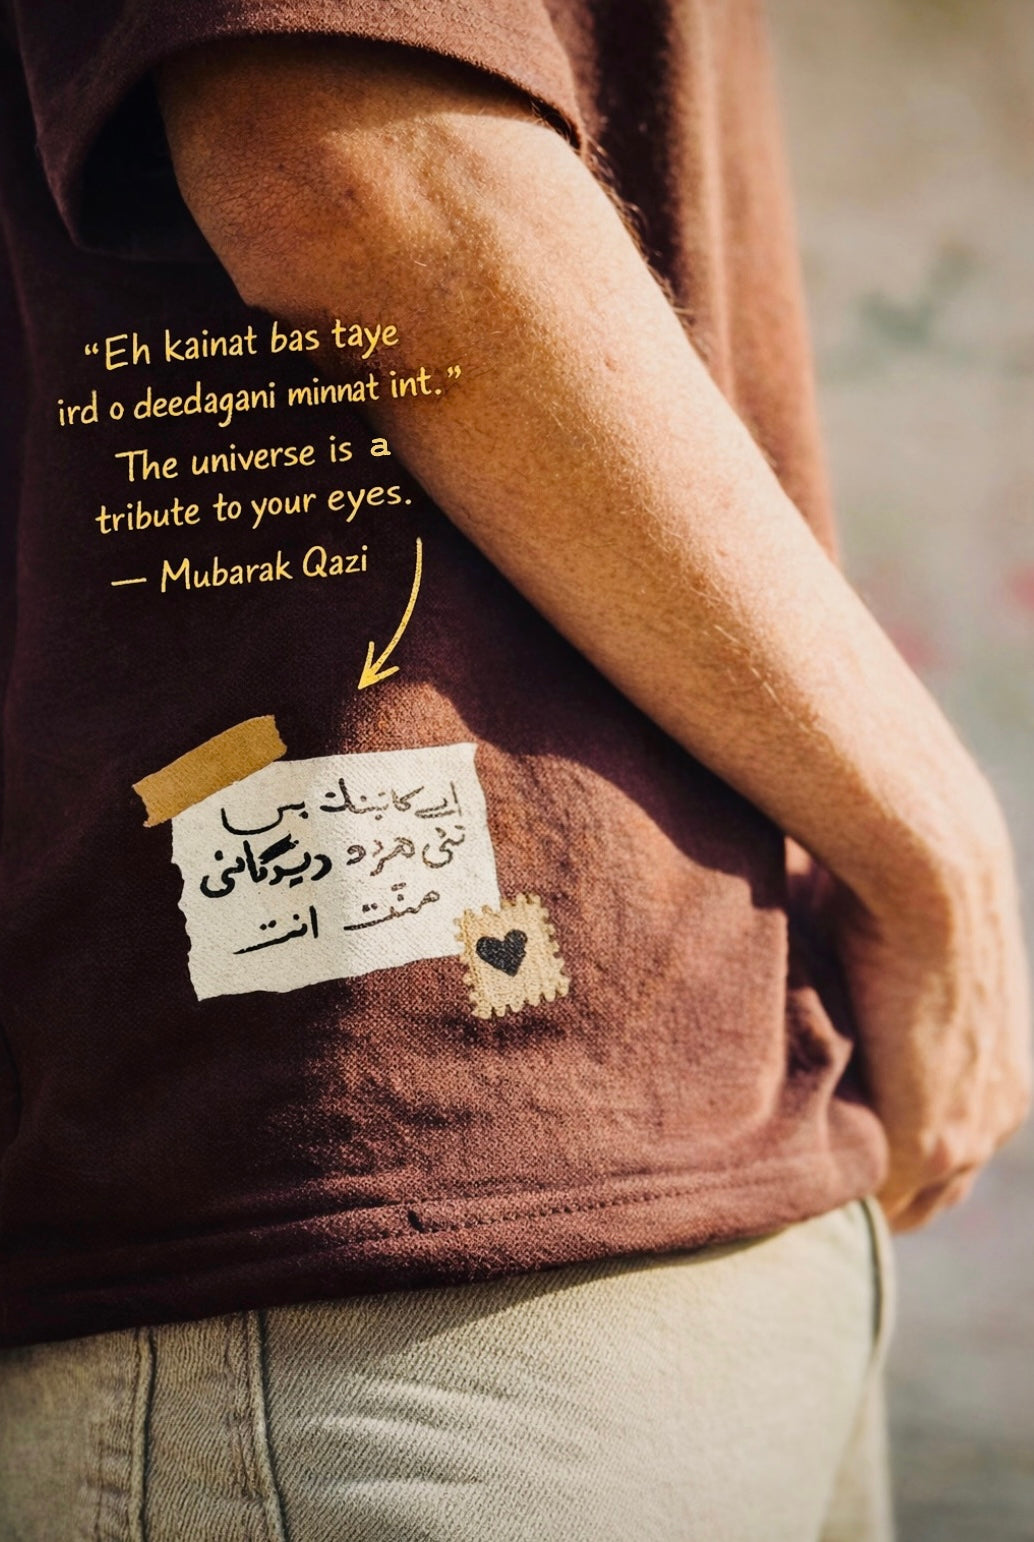 “Eh kainat bas taye
ird o deedagani minnat int.”
The universe is a
tribute to your eyes.
— Mubarak Qazi
اے کائینات بس
تئی هردو دیدگانی
منّت انت